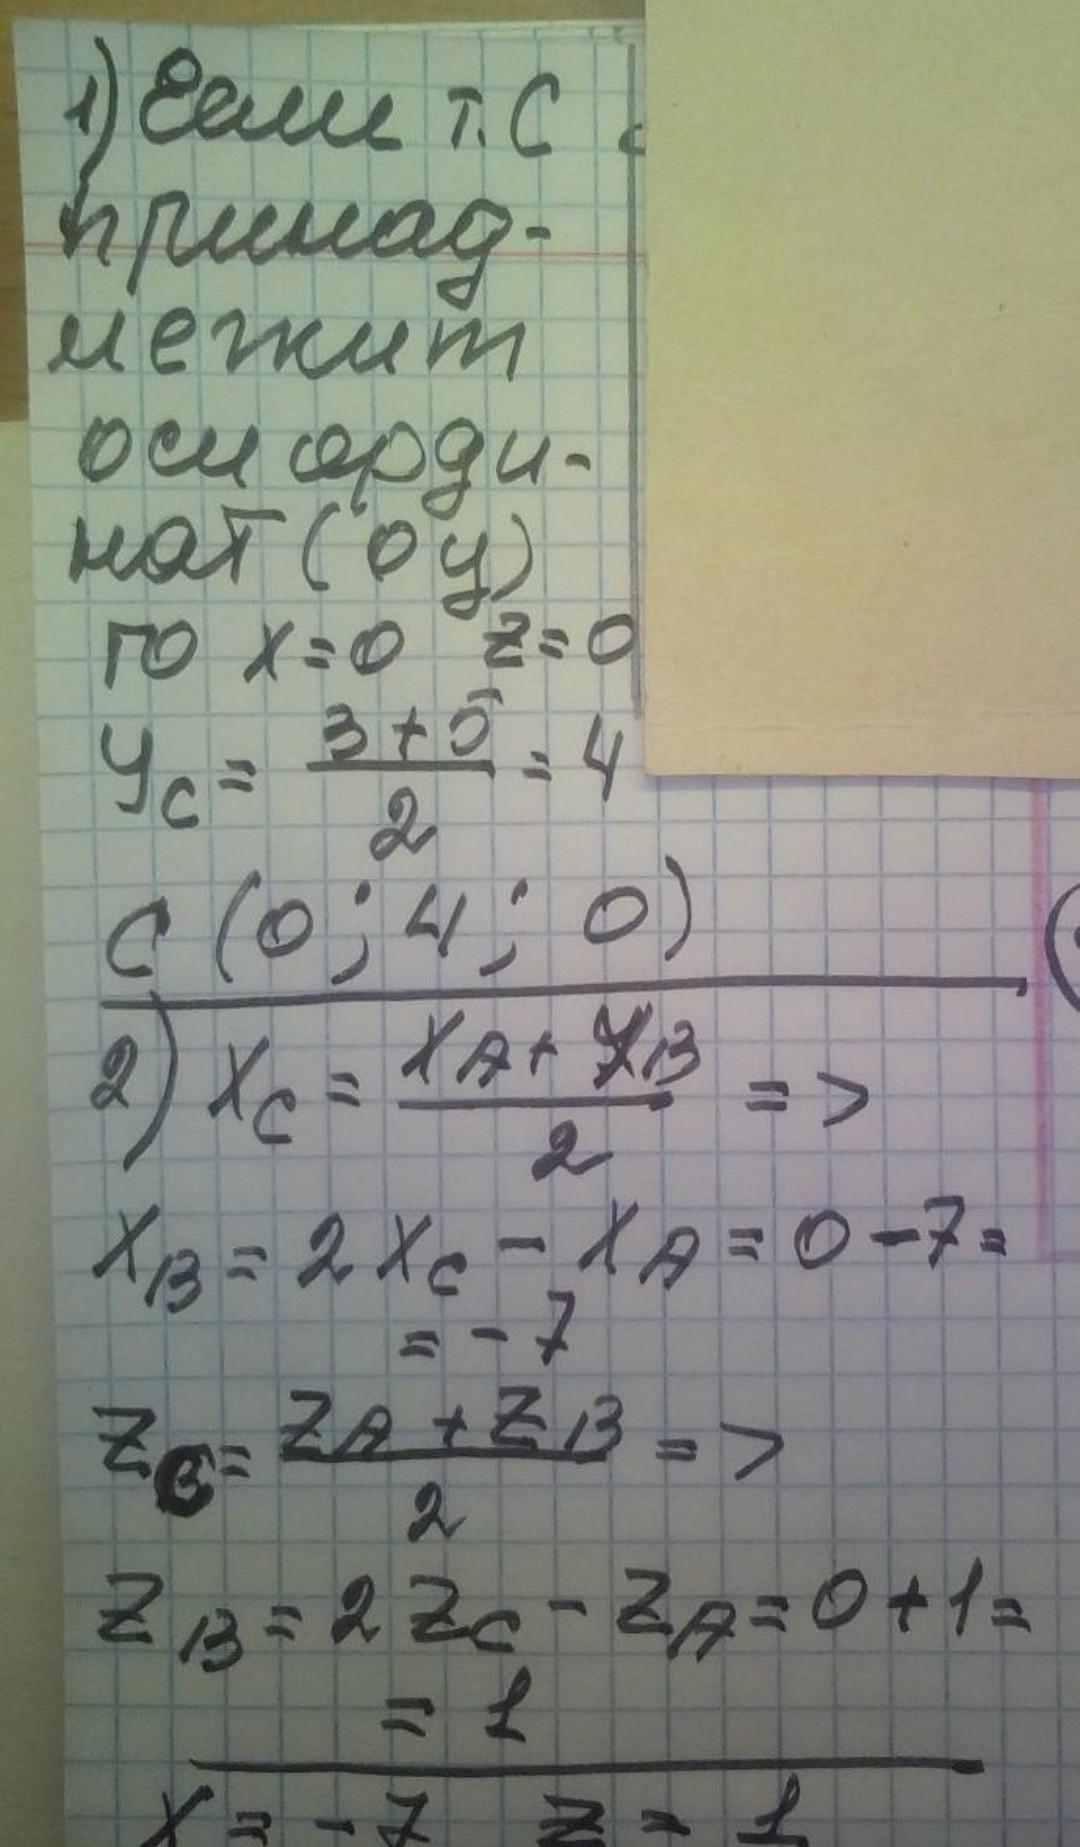 1) Если т. С
принад-
лежит
оси орди-
нат (Oy)
то x=0 z=0
Yc = (3+5)/2 = 4
C (0; 4; 0)
2) Xc = (XA + XB)/2 =>
XB = 2Xc - XA = 0 - 7 =
= -7
Zc = (ZA + ZB)/2 =>
ZB = 2Zc - ZA = 0 + 1 =
= 1
X = -7 Z = 1